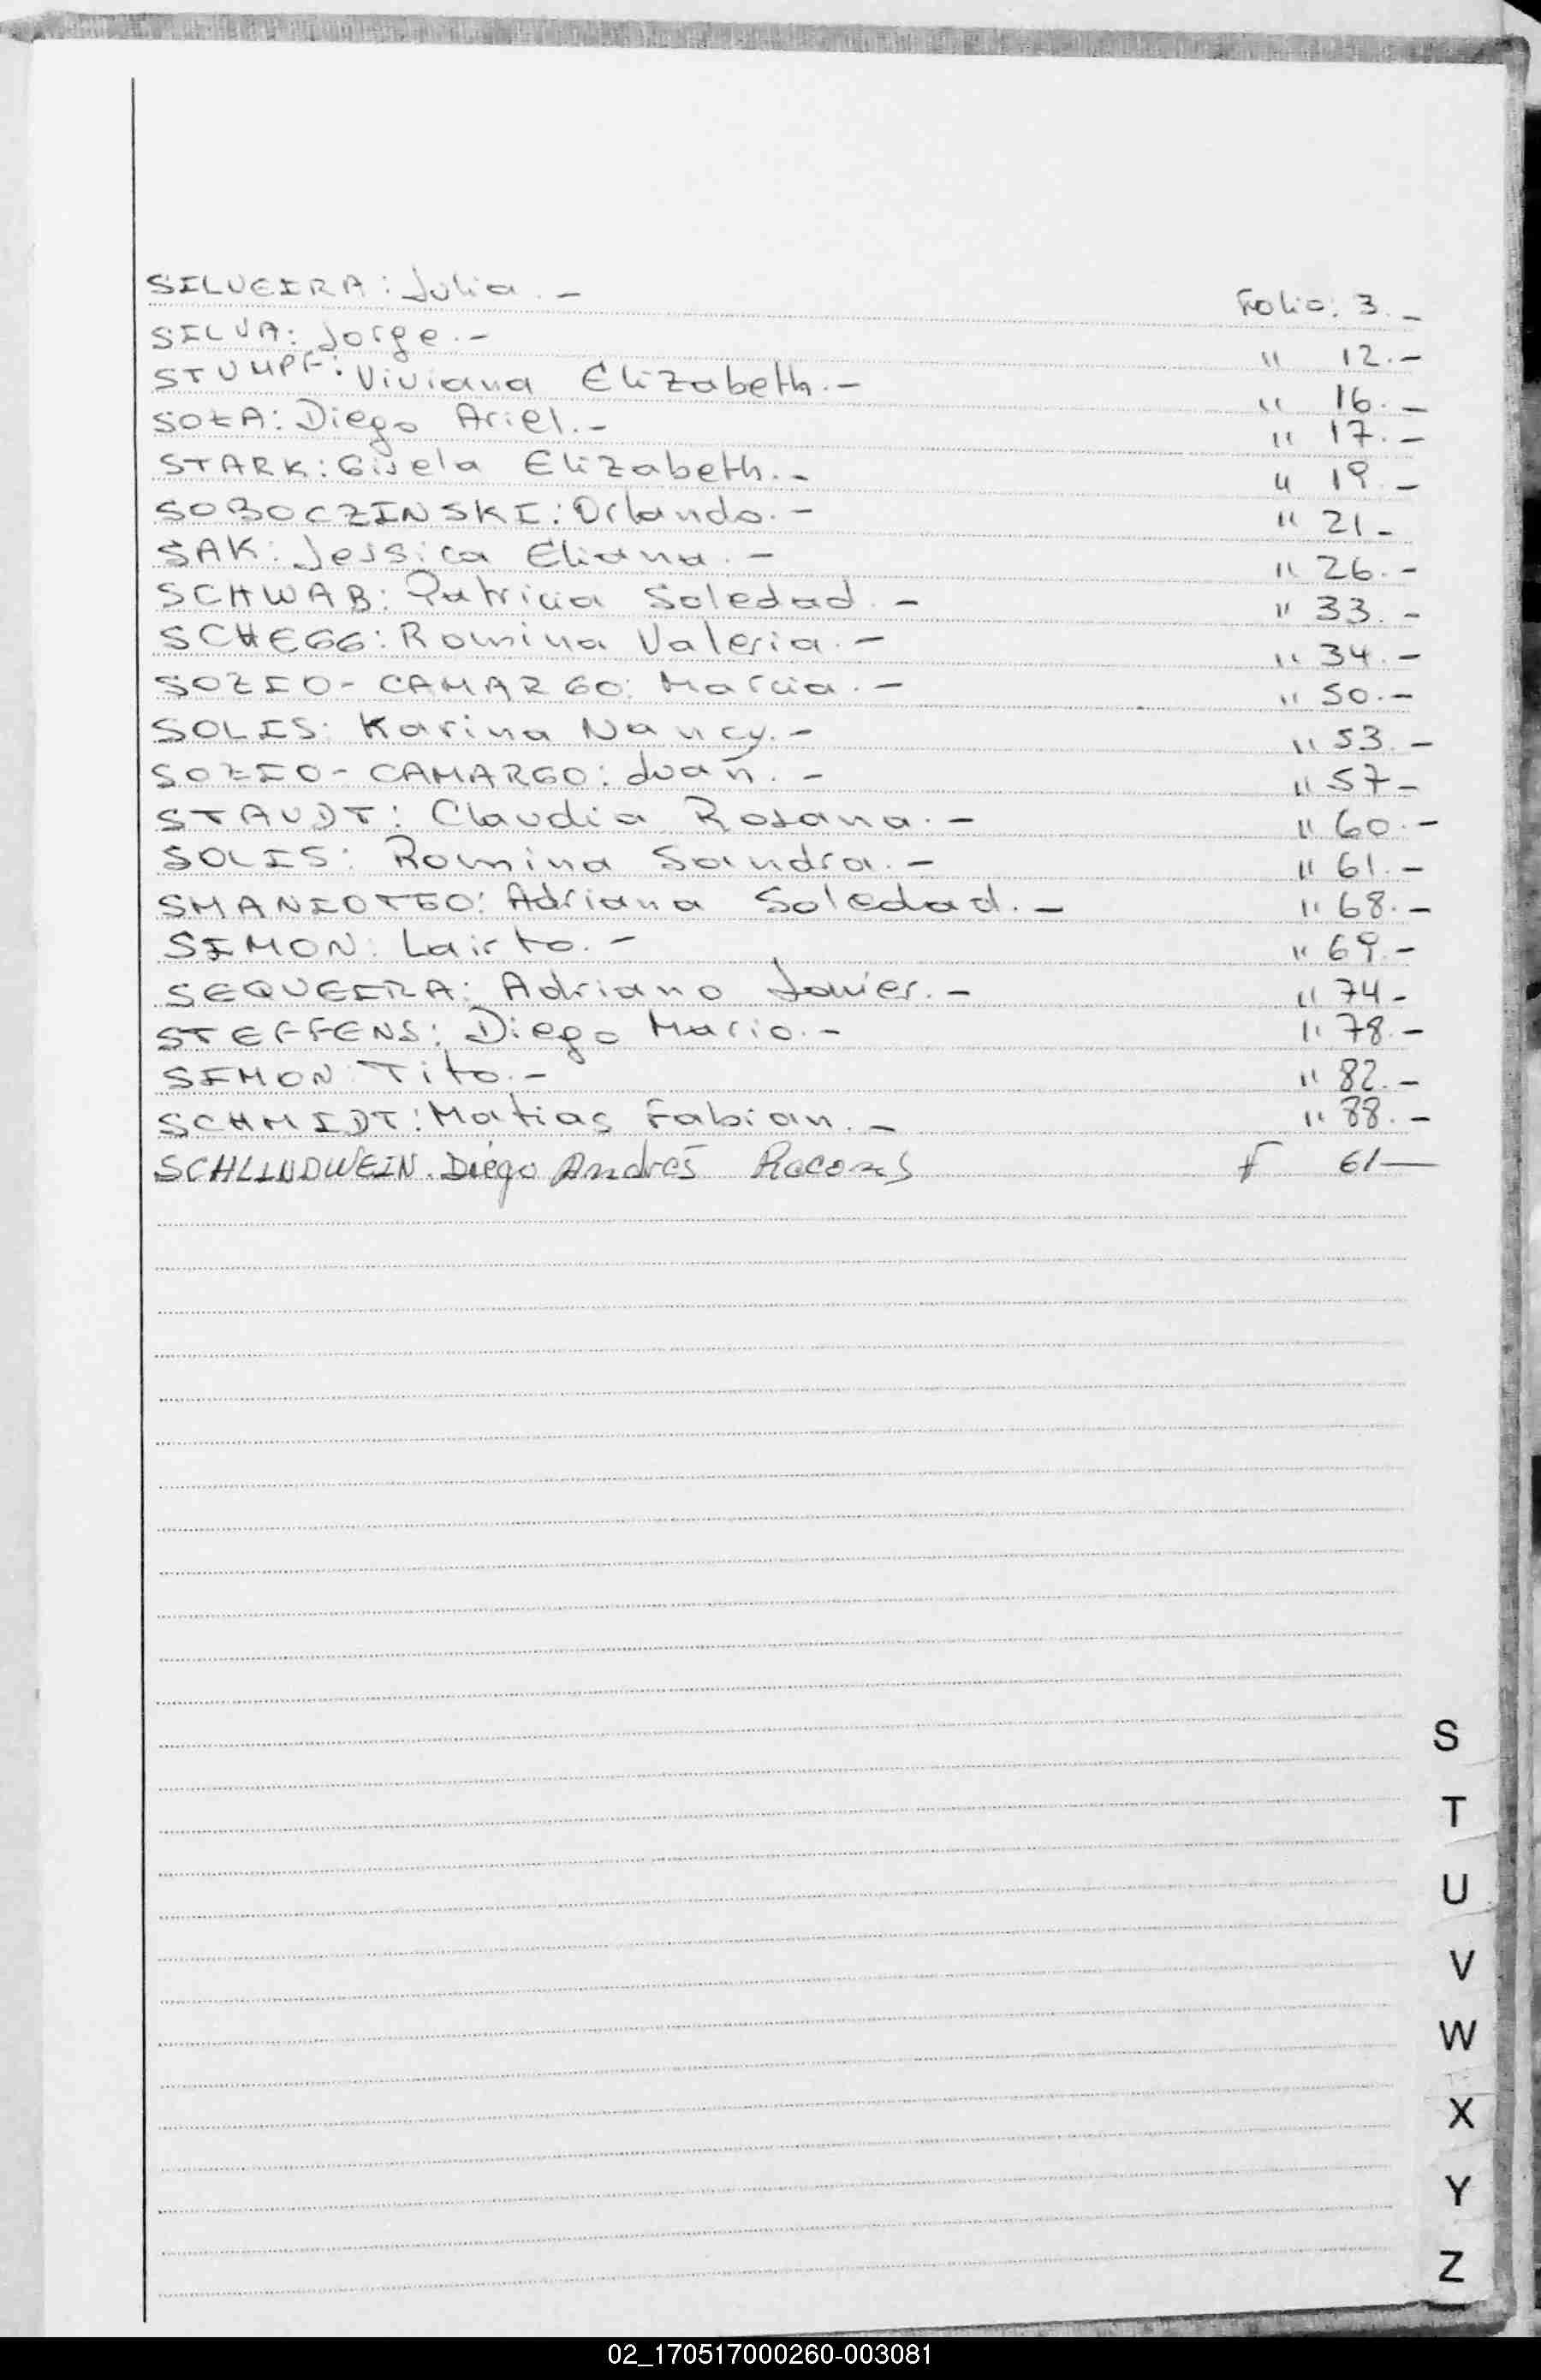 SILVEIRA: Julia.- Folio: 3.-
SILVA: Jorge.- " 12.-
STUMPF: Viviana Elizabeth.- " 16.-
SOZA: Diego Ariel.- " 17.-
STARK: Gisela Elizabeth.- " 19.-
SOBOCZINSKI: Orlando.- " 21-
SAK: Jessica Eliana.- " 26.-
SCHWAB: Patricia Soledad.- " 33.-
SCHEGG: Romina Valeria.- " 34.-
SOZIO-CAMARGO: Marcia.- " 50.-
SOLIS: Karina Nancy.- " 53.-
SOZIO-CAMARGO: Juan.- " 57-
STAUDT: Claudia Rosana.- " 60.-
SOLIS: Romina Sandra.- " 61.-
SMANIOTTO: Adriana Soledad.- " 68.-
SIMON: Lairto.- " 69.-
SEQUEIRA: Adriano Javier.- " 74-
STEFFENS: Diego Mario.- " 78.-
SIMON: Tito.- " 82.-
SCHMIDT: Matias Fabian.- " 88.-
SCHLINDWEIN. Diego Andrés F 61—
S
T
U
V
W
X
Y
Z
02_170517000260-003081